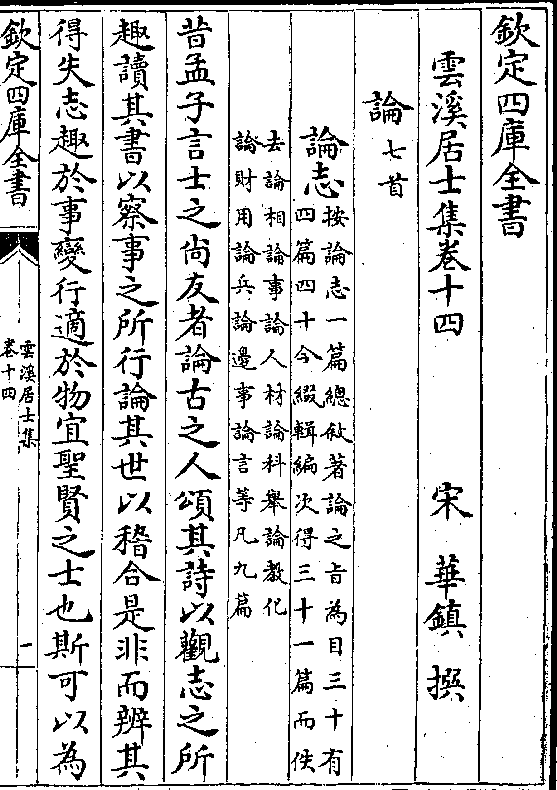 欽定四庫全書
雲溪居士集卷十四 宋 華鎮 撰
論七首
論志
按論志一篇總敘著論之旨為目三十有
四篇四十今綴輯編次得三十一篇而佚
去論相論事論人材論科舉論教化
論財用論兵論邊事論言等凡九篇
昔孟子言士之尚友者論古之人頌其詩以觀志之所
趣讀其書以察事之所行論其世以稽合是非而辨其
得失志趣於事變行適於物宜聖賢之士也斯可以為
欽定四庫全書
雲溪居士集
卷十四
一